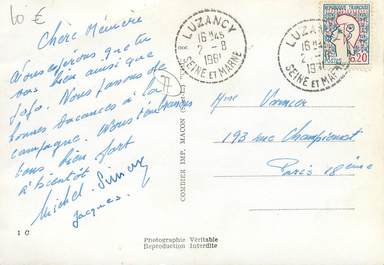 10 €
Chère Mémère
Nous espérons que tu
vas bien ainsi que
Jojo. Nous passons de
bonnes vacances à la
campagne. Nous t'embrassons
tous bien fort
à bientôt.
Michel Simon
Jacques.
1 C
COMBIER IMP. MACON
LUZANCY
16 H45
2 - 8
SEINE ET MARNE
LUZANCY
16 H45
SEINE ET MARNE
0,20
Mme
193 rue Championnet
Paris 18ème
Photographie Véritable
Reproduction Interdite